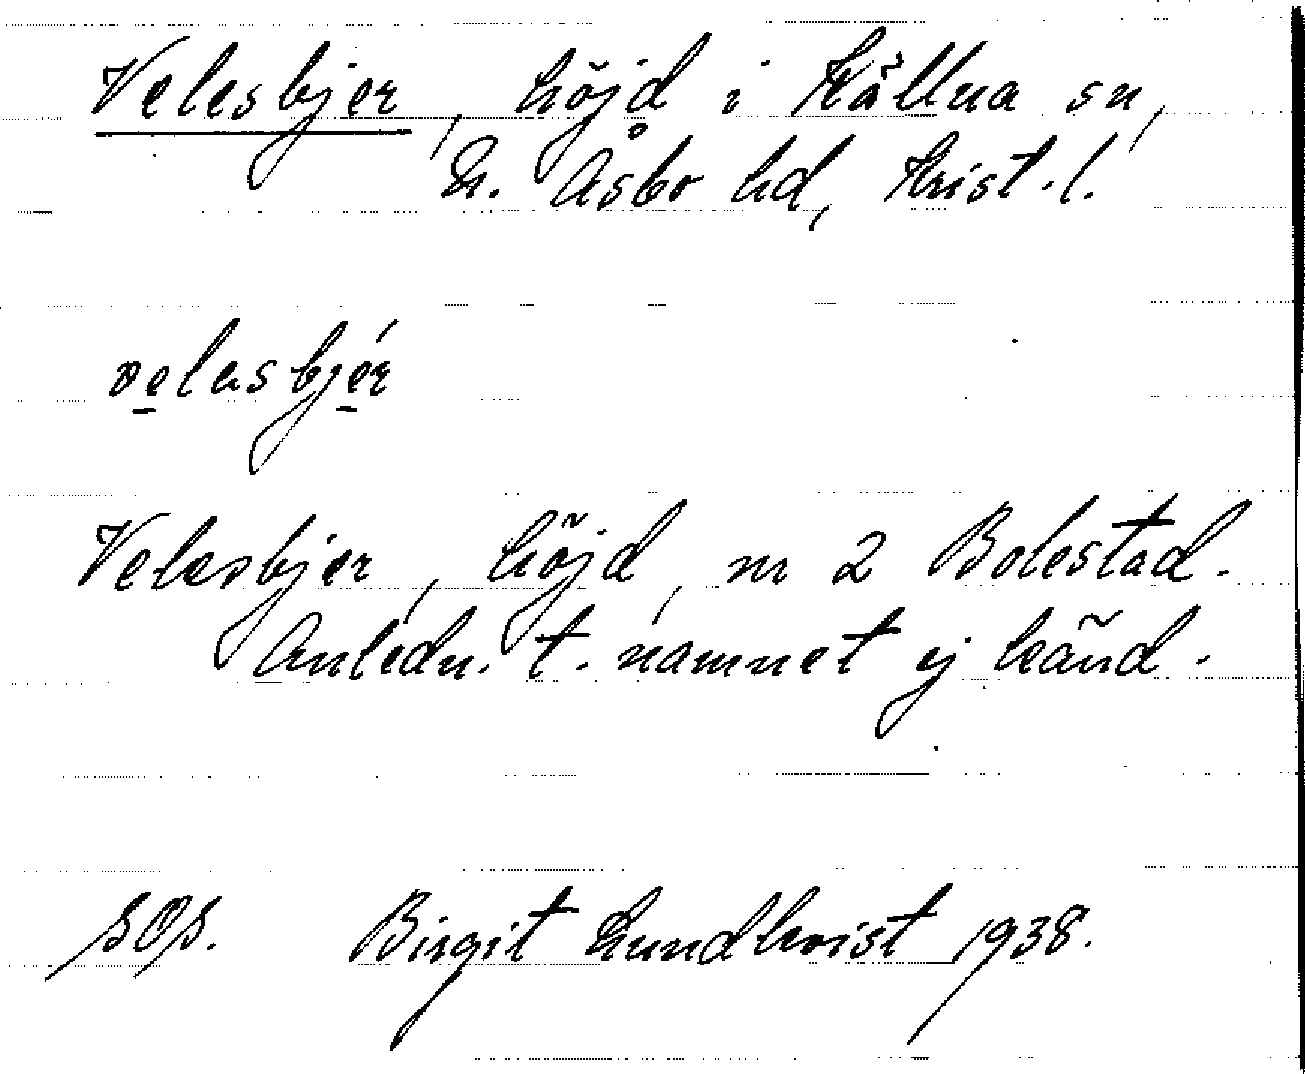 Velesbjer, höjd i Källna sn,
N. Åsbo hd, Krist. l.
velasbjér
Velesbjer, höjd, nr 2 Bolestad.
Anledn. t. namnet ej känd.
SOS. Birgit Lundkvist 1938.